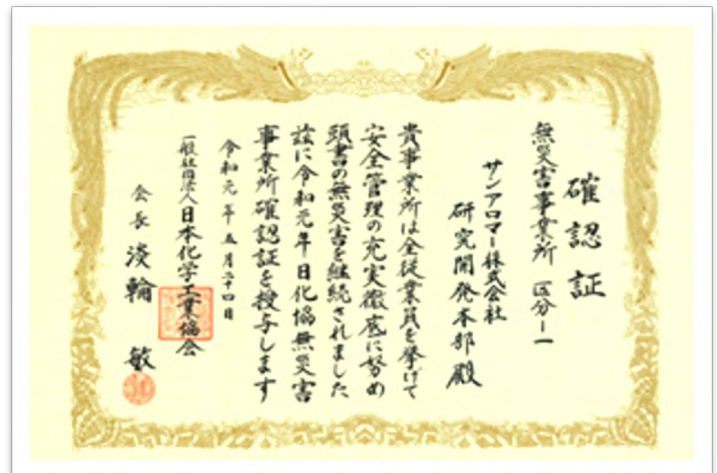 確認証
無災害事業所 区分ー一
サンアロマー株式会社
研究開発本部殿
貴事業所は全従業員を挙げて
安全管理の充実徹底に努め
頭書の無災害を継続されました
茲に令和元年日化協無災害
事業所確認証を授与します
令和元年五月二十四日
一般社団法人日本化学工業協会
会長 淡輪 敏